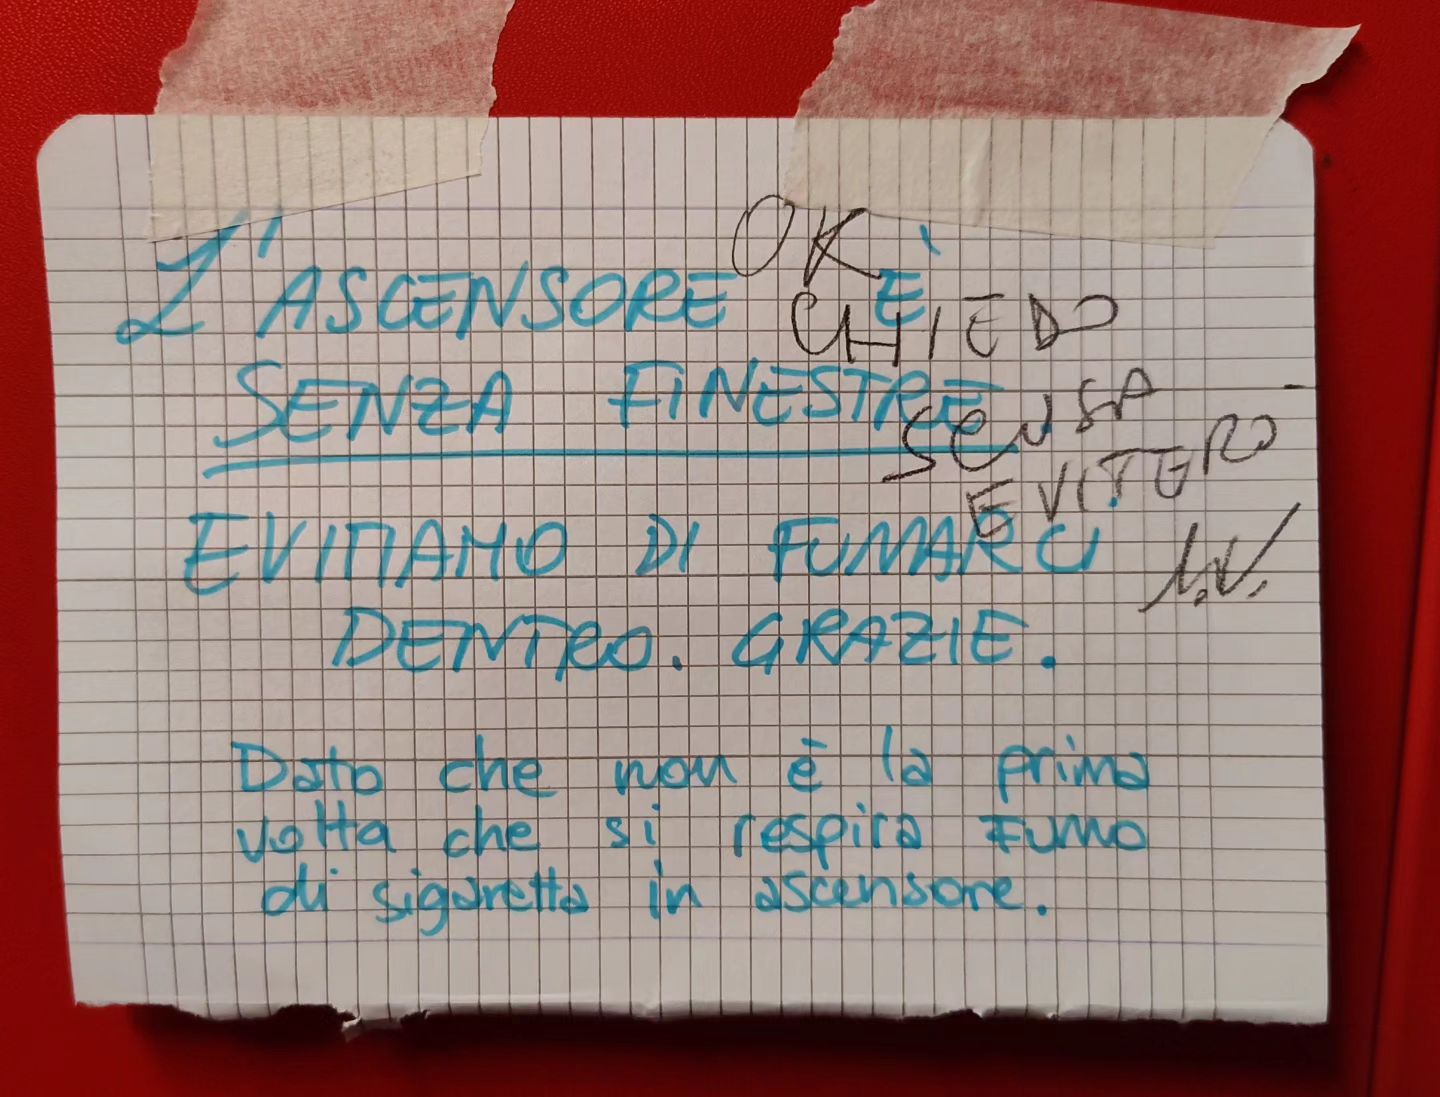 L'ASCENSORE È
SENZA FINESTRE
EVITIAMO DI FUMARCI
DENTRO. GRAZIE.
Dato che non è la prima
volta che si respira FUMO
di sigaretta in ascensore.
OK
CHIEDO
SCUSA
EVITERO